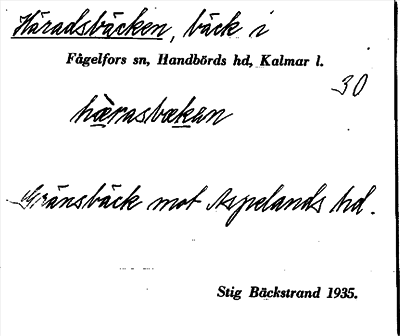 Häradsbäcken, bäck i
Fågelfors sn, Handbörds hd, Kalmar l.
30
hærasbækan
Gränsbäck mot Aspelands hd.
Stig Bäckstrand 1935.